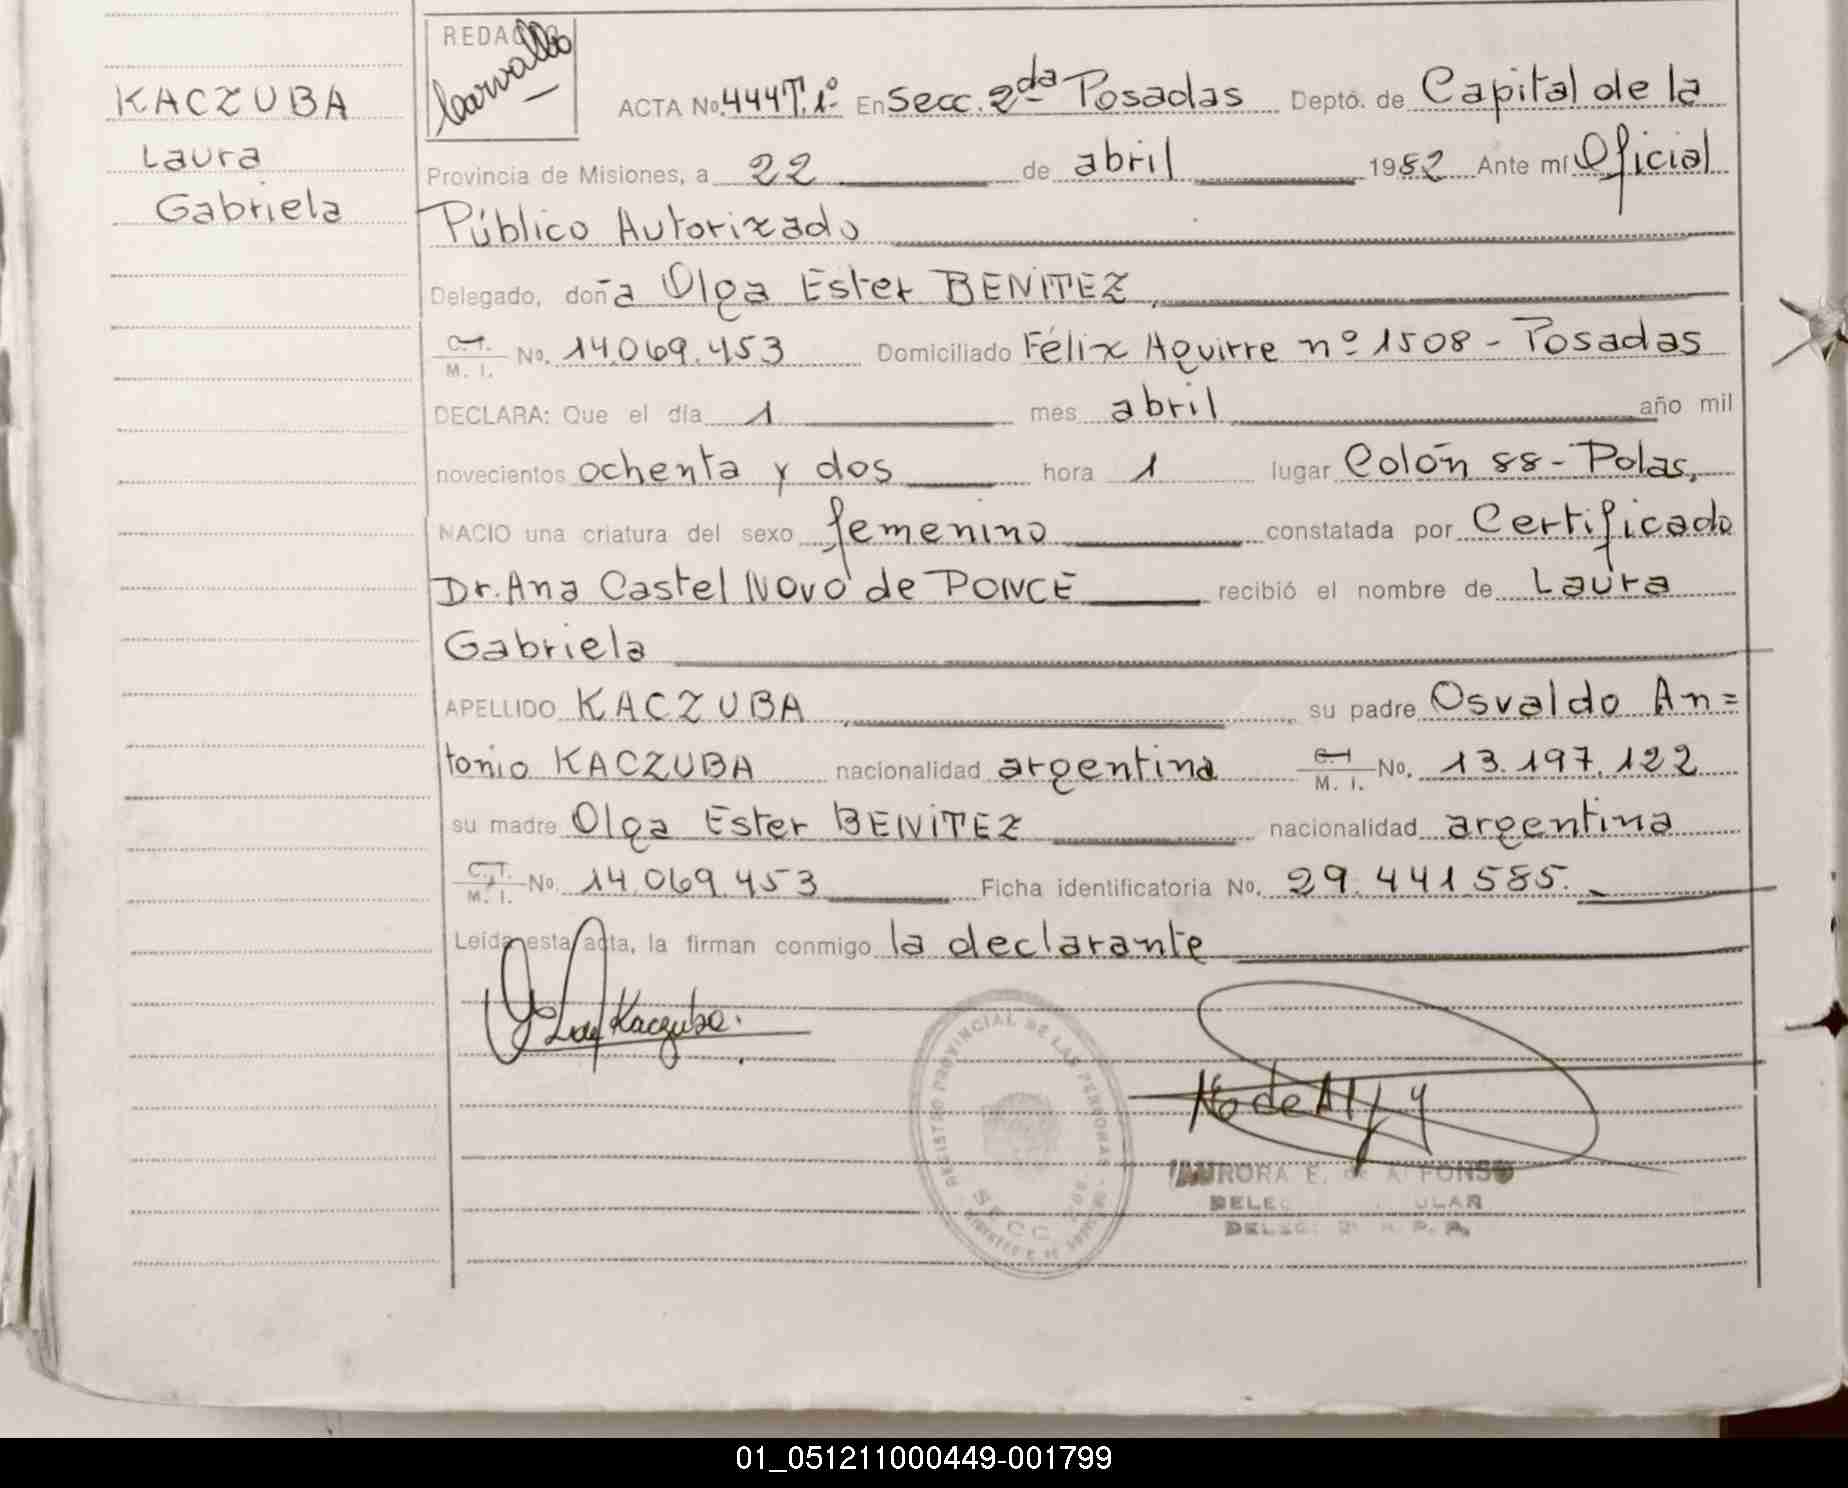 KACZUBA
Laura
Gabriela
REDACTO
Carvallo
ACTA No. 444 T. 1º En Secc. 2da Posadas Depto. de Capital de la
Provincia de Misiones, a 22 de abril 1982 Ante mí Oficial
Público Autorizado
Delegado, doña Olga Ester BENITEZ,
C.I. M. I. No. 14.069.453 Domiciliado Félix Aguirre nº 1508 - Posadas
DECLARA: Que el día 1 mes abril año mil
novecientos ochenta y dos hora 1 lugar Colón 88 - Pdas,
NACIO una criatura del sexo femenino constatada por Certificado
Dr. Ana Castel Novo de PONCE recibió el nombre de Laura
Gabriela
APELLIDO KACZUBA, su padre Osvaldo An=
tonio KACZUBA nacionalidad argentina C.I. M. I. No. 13.197.122
su madre Olga Ester BENITEZ nacionalidad argentina
C.I. M. I. No. 14.069.453 Ficha identificatoria No. 29.441.585.-
Leída esta acta, la firman conmigo la declarante
Kaczuba.
REGISTRO PROVINCIAL DE LAS PERSONAS
SECC.
AURORA E. de ALFONSO
01_051211000449-001799